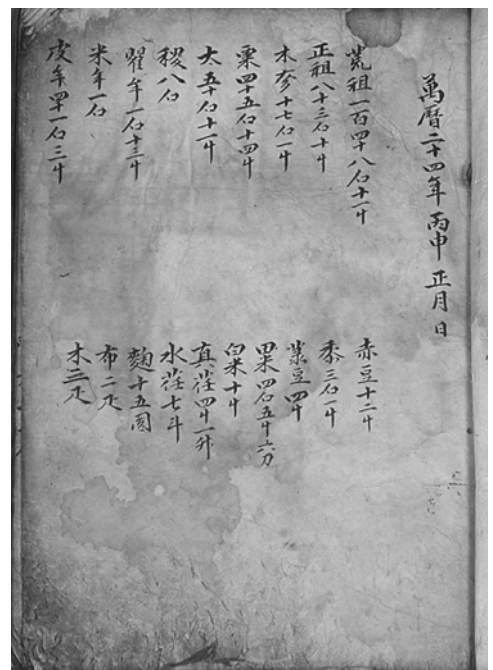 萬曆二十四年丙申正月日
荒租一百四十八石十一斗
正租八十三石十斗
木麥十七石一斗
粟四十五石十四斗
太五十石十一斗
稷八石
瞿牟一石十三斗
米牟一石
皮牟四十一石三斗
赤豆十二斗
黍三石一斗
菉豆四斗
田米四石五斗六刀
白米十斗
真荏四斗一升
水荏七斗
麴十五圓
布二疋
木三疋